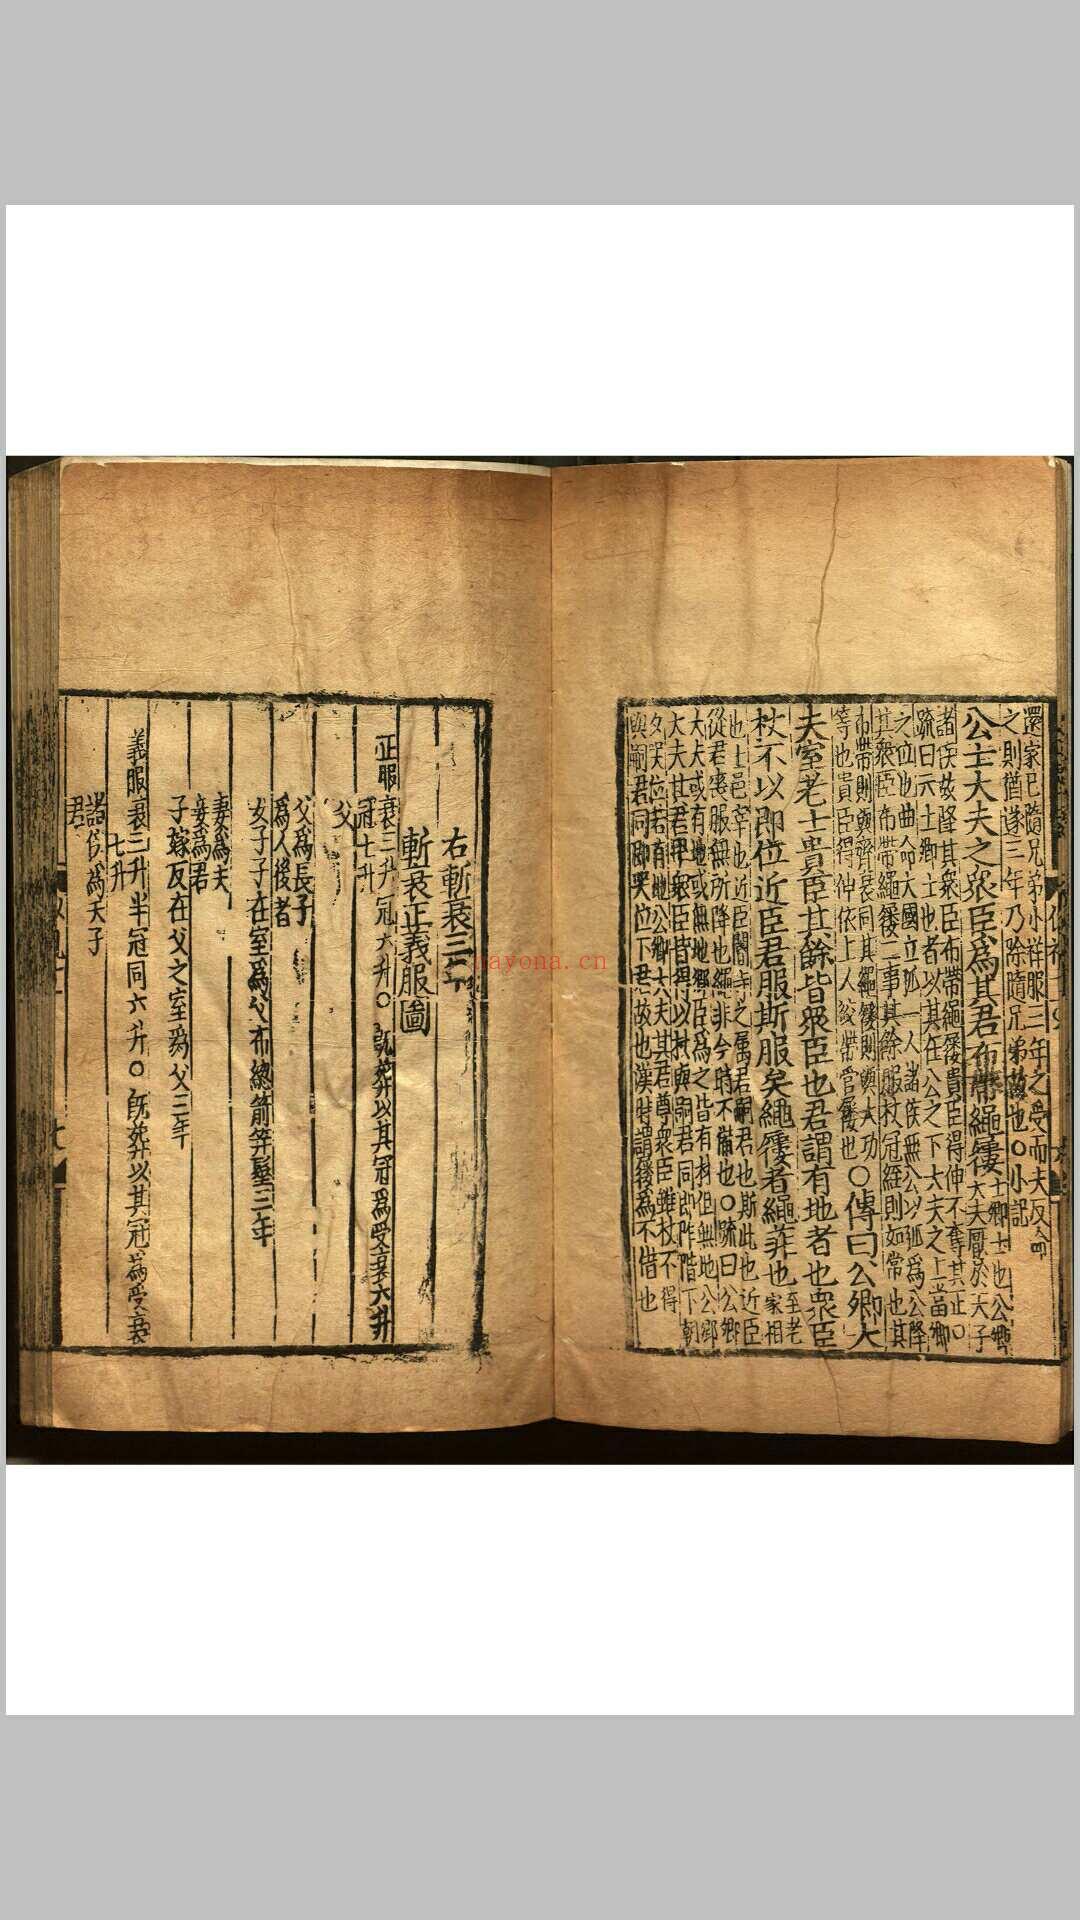 還家已隨兄弟小祥服三年之受而夫反命
之則猶遂三年乃除隨兄弟故也〇小記
公士大夫之衆臣爲其君布帶繩屨
士卿士也公卿
大夫厭於天子
諸侯故降其衆臣布帶繩屨貴臣得伸不奪其正〇
疏曰云士卿士也者以其在公之下大夫之上當卿
之位也曲命大國立孤一人諸侯無公以孤爲公降
其衆臣布帶繩屨二事其餘服杖冠絰則如常也其
布帶則與齊衰同其繩屨則與大功
等也貴臣得伸依上人絞帶菅屨也
〇傳曰公卿大
夫室老士貴臣其餘皆衆臣也君謂有地者也衆臣
杖不以即位近臣君服斯服矣繩屨者繩菲也
室老
家相
也士邑宰也近臣閽寺之屬君嗣君也斯此也近臣
從君喪服無所降也繩菲今時不借也〇疏曰公卿
大夫或有地或無地衆臣爲之皆有杖但無地公卿
大夫其君卑衆臣皆得以杖與嗣君同即阼階下朝
夕哭位若有地公卿大夫其君尊衆臣雖杖不得
與嗣君同即哭位下君故也漢時謂屨爲不借也
右斬衰三年
斬衰正義服圖
正服衰三升冠六升〇既葬以其冠爲受衰六升
冠七升
父
父爲長子
爲人後者
女子子在室爲父布總箭笄髽三年
妻爲夫
妾爲君
子嫁反在父之室爲父三年
義服衰三升半冠同六升〇既葬以其冠爲受衰
七升
諸侯爲天子
君
nayona.cn